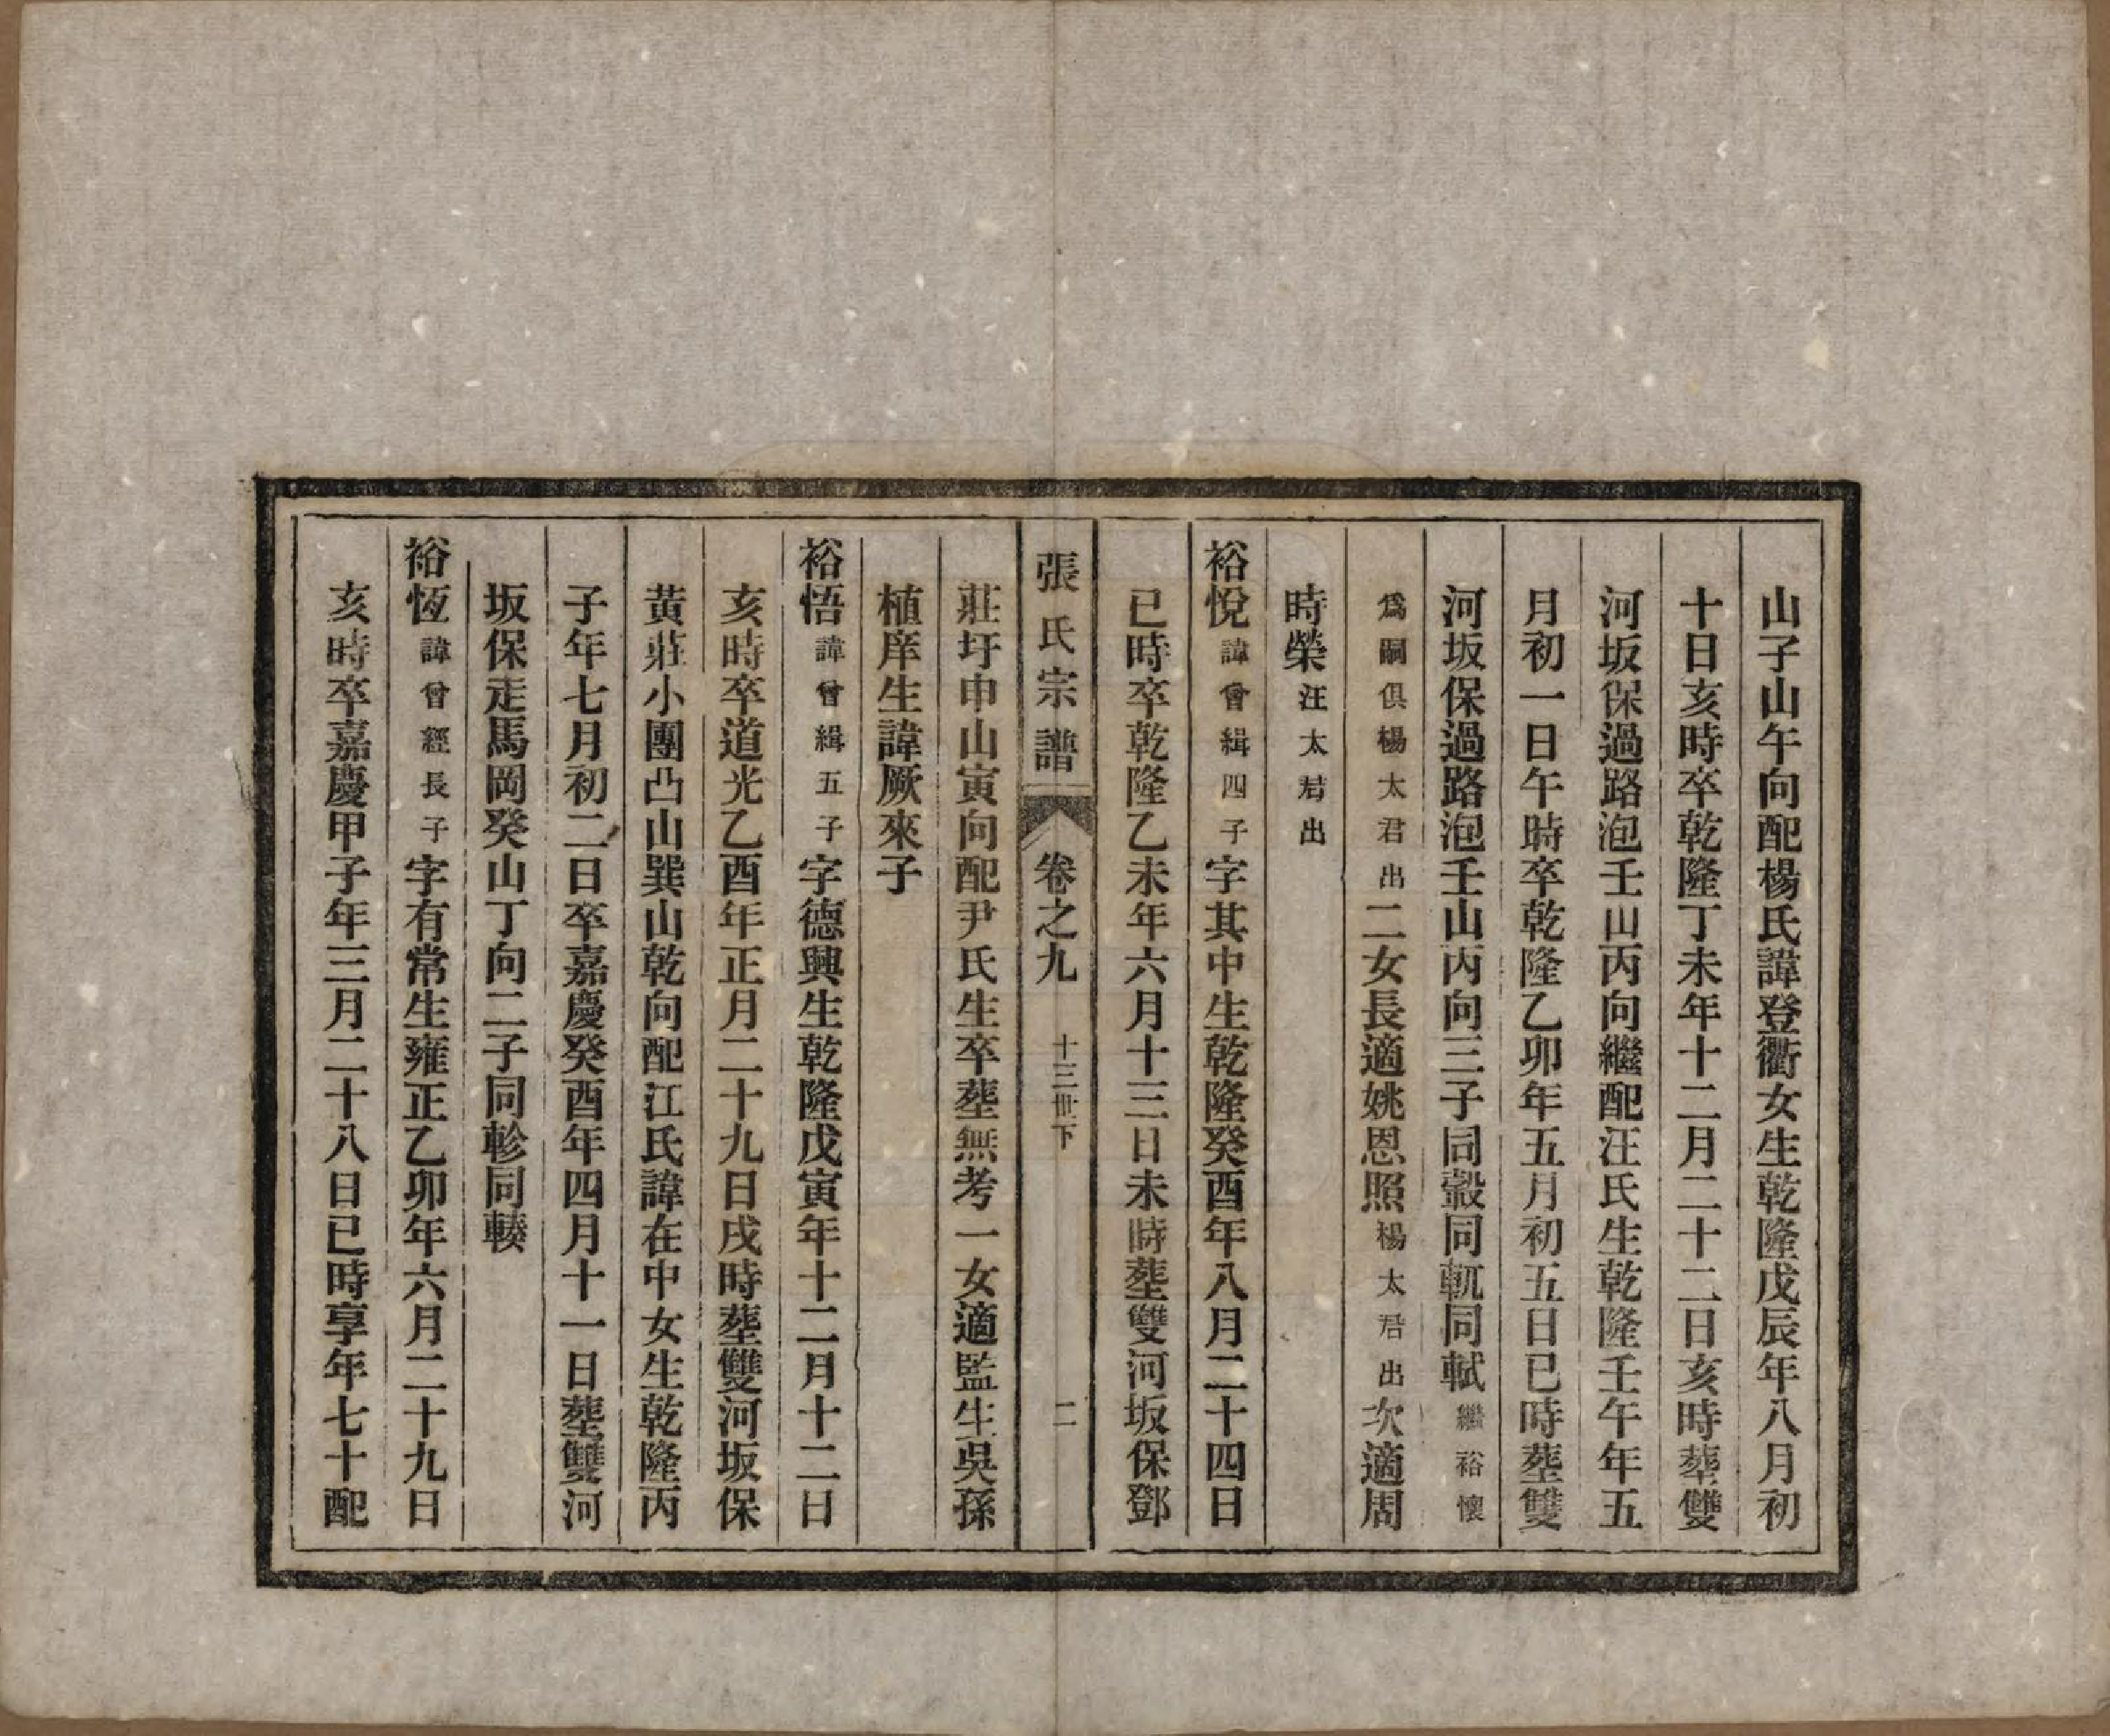 山子山午向配楊氏諱登衢女生乾隆戊辰年八月初
十日亥時卒乾隆丁未年十二月二十二日亥時葬雙
河坂保過路泡壬山丙向繼配汪氏生乾隆壬午年五
月初一日午時卒乾隆乙卯年五月初五日巳時葬雙
河坂保過路泡壬山丙向三子同轂同軏同軾繼裕懷
爲嗣俱楊太君出二女長適姚恩照楊太君出次適周
時榮汪太君出
裕悅諱曾緝四子字其中生乾隆癸酉年八月二十四日
巳時卒乾隆乙未年六月十三日未時葬雙河坂保鄧
張氏宗譜 卷之九 十三世下 二
莊圩申山寅向配尹氏生卒葬無考一女適監生吳孫
植庠生諱厥來子
裕悟諱曾緝五子字德興生乾隆戊寅年十二月十二日
亥時卒道光乙酉年正月二十九日戌時葬雙河坂保
黄莊小團凸山巽山乾向配江氏諱在中女生乾隆丙
子年七月初二日卒嘉慶癸酉年四月十一日葬雙河
坂保走馬岡癸山丁向二子同軫同轅
裕恆諱曾經長子字有常生雍正乙卯年六月二十九日
亥時卒嘉慶甲子年三月二十八日巳時享年七十配